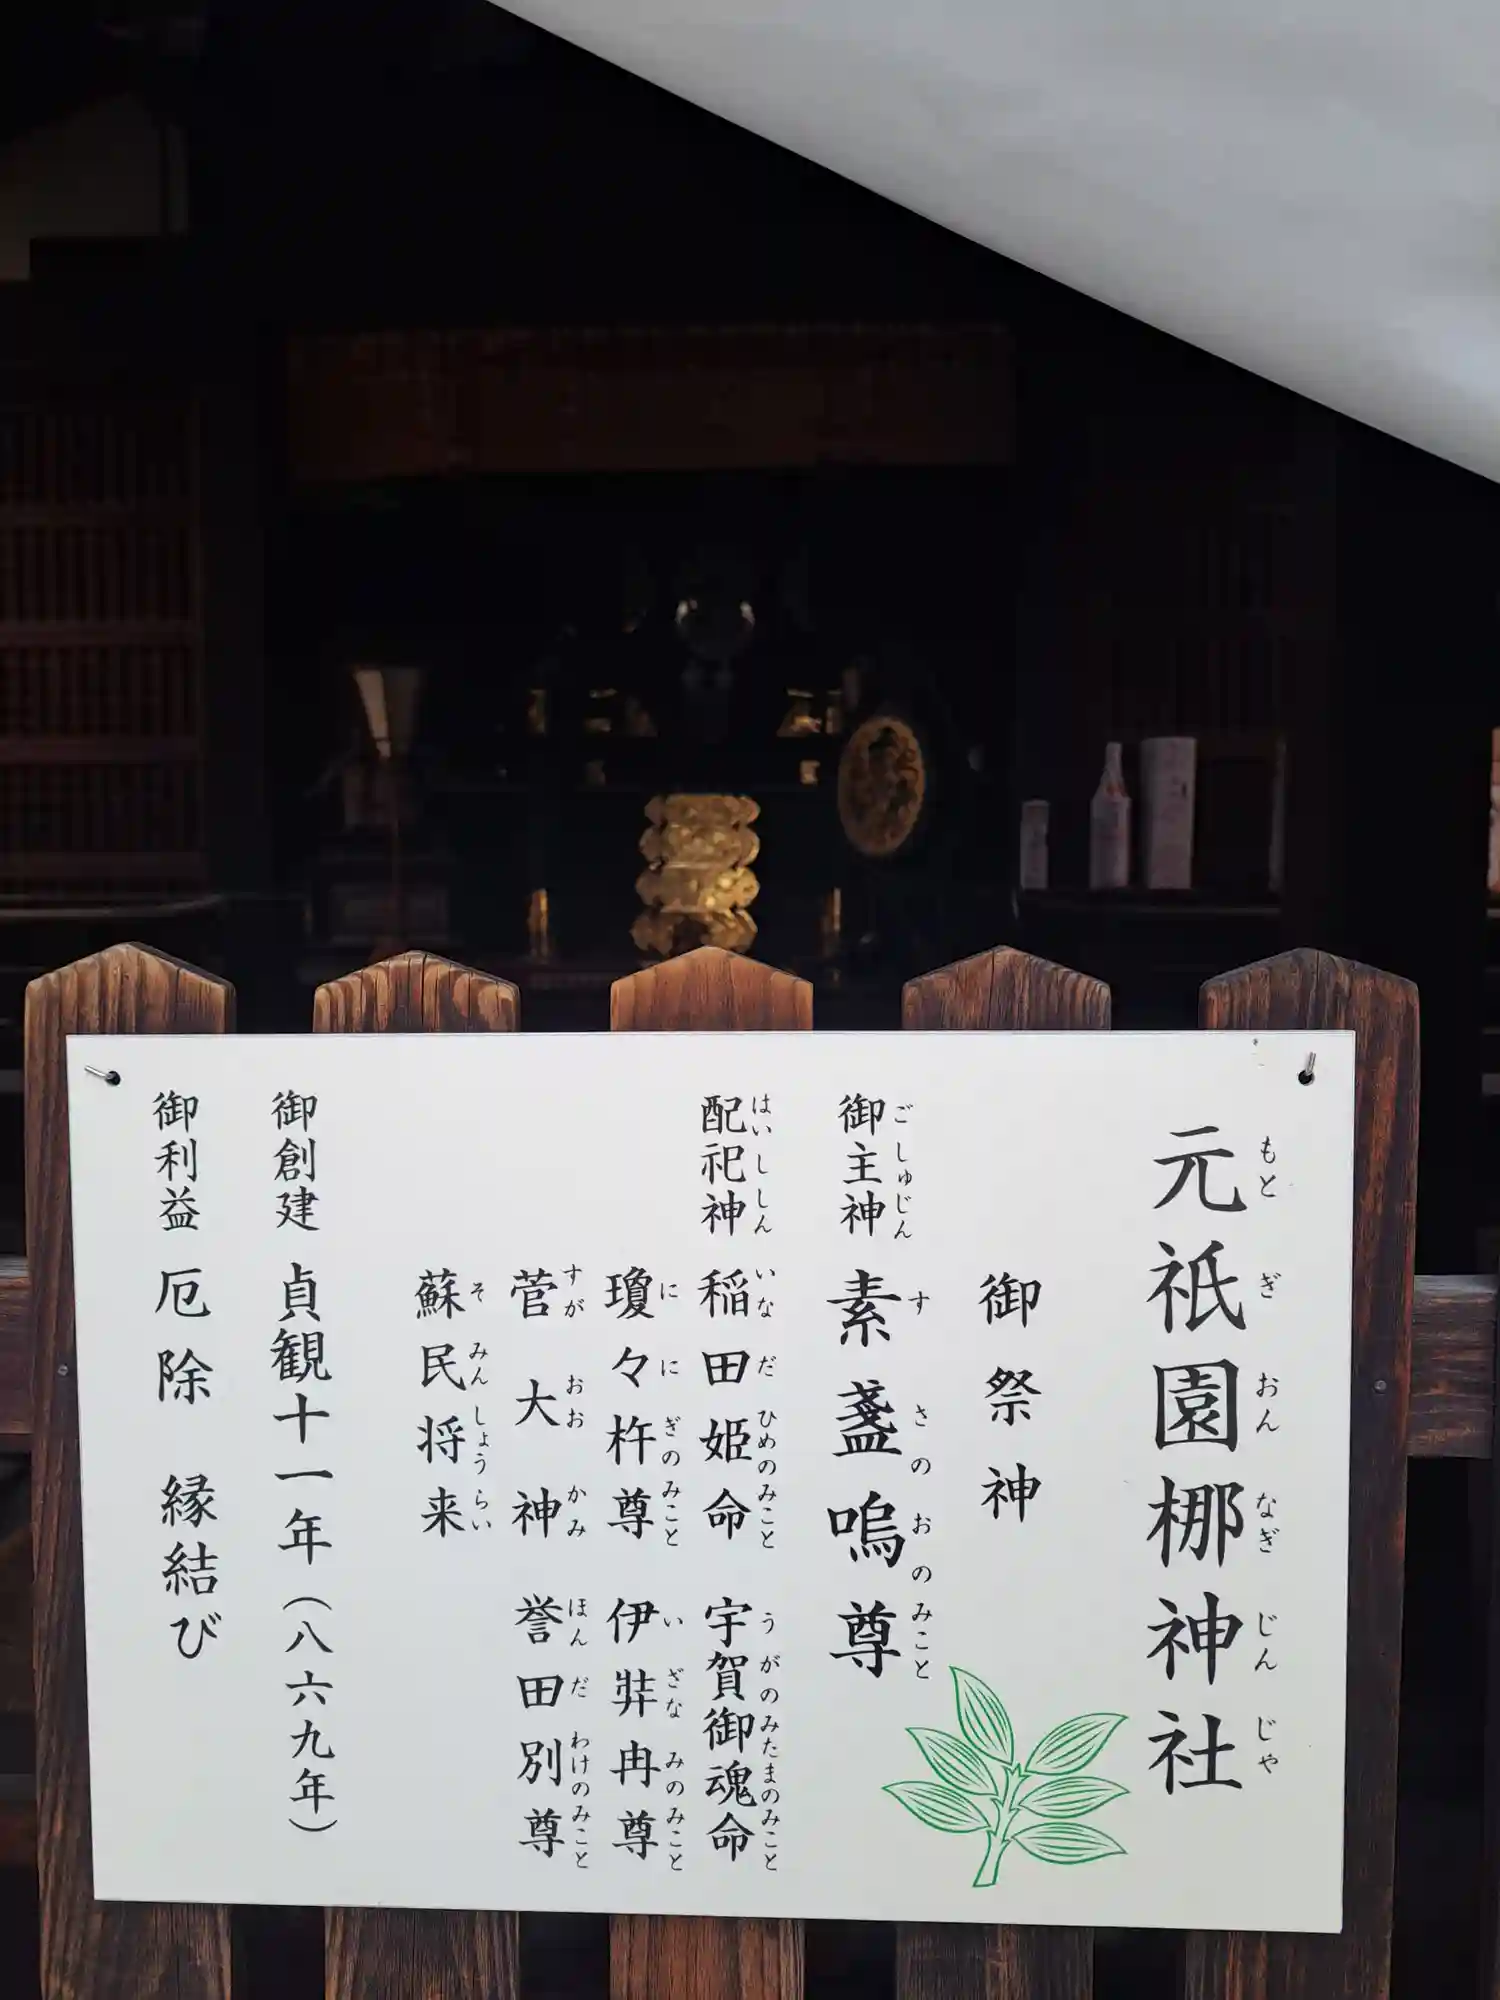 元祇園梛神社
もとぎおんなぎじんじゃ
御祭神
御主神 素盞嗚尊
ごしゅじん すさのおのみこと
配祀神 稲田姫命 宇賀御魂命
はいししん いなだひめのみこと うがのみたまのみこと
瓊々杵尊 伊弉冉尊
ににぎのみこと いざなみのみこと
菅大神 誉田別尊
すがおおかみ ほんだわけのみこと
蘇民将来
そみんしょうらい
御創建 貞観十一年(八六九年)
御利益 厄除 縁結び